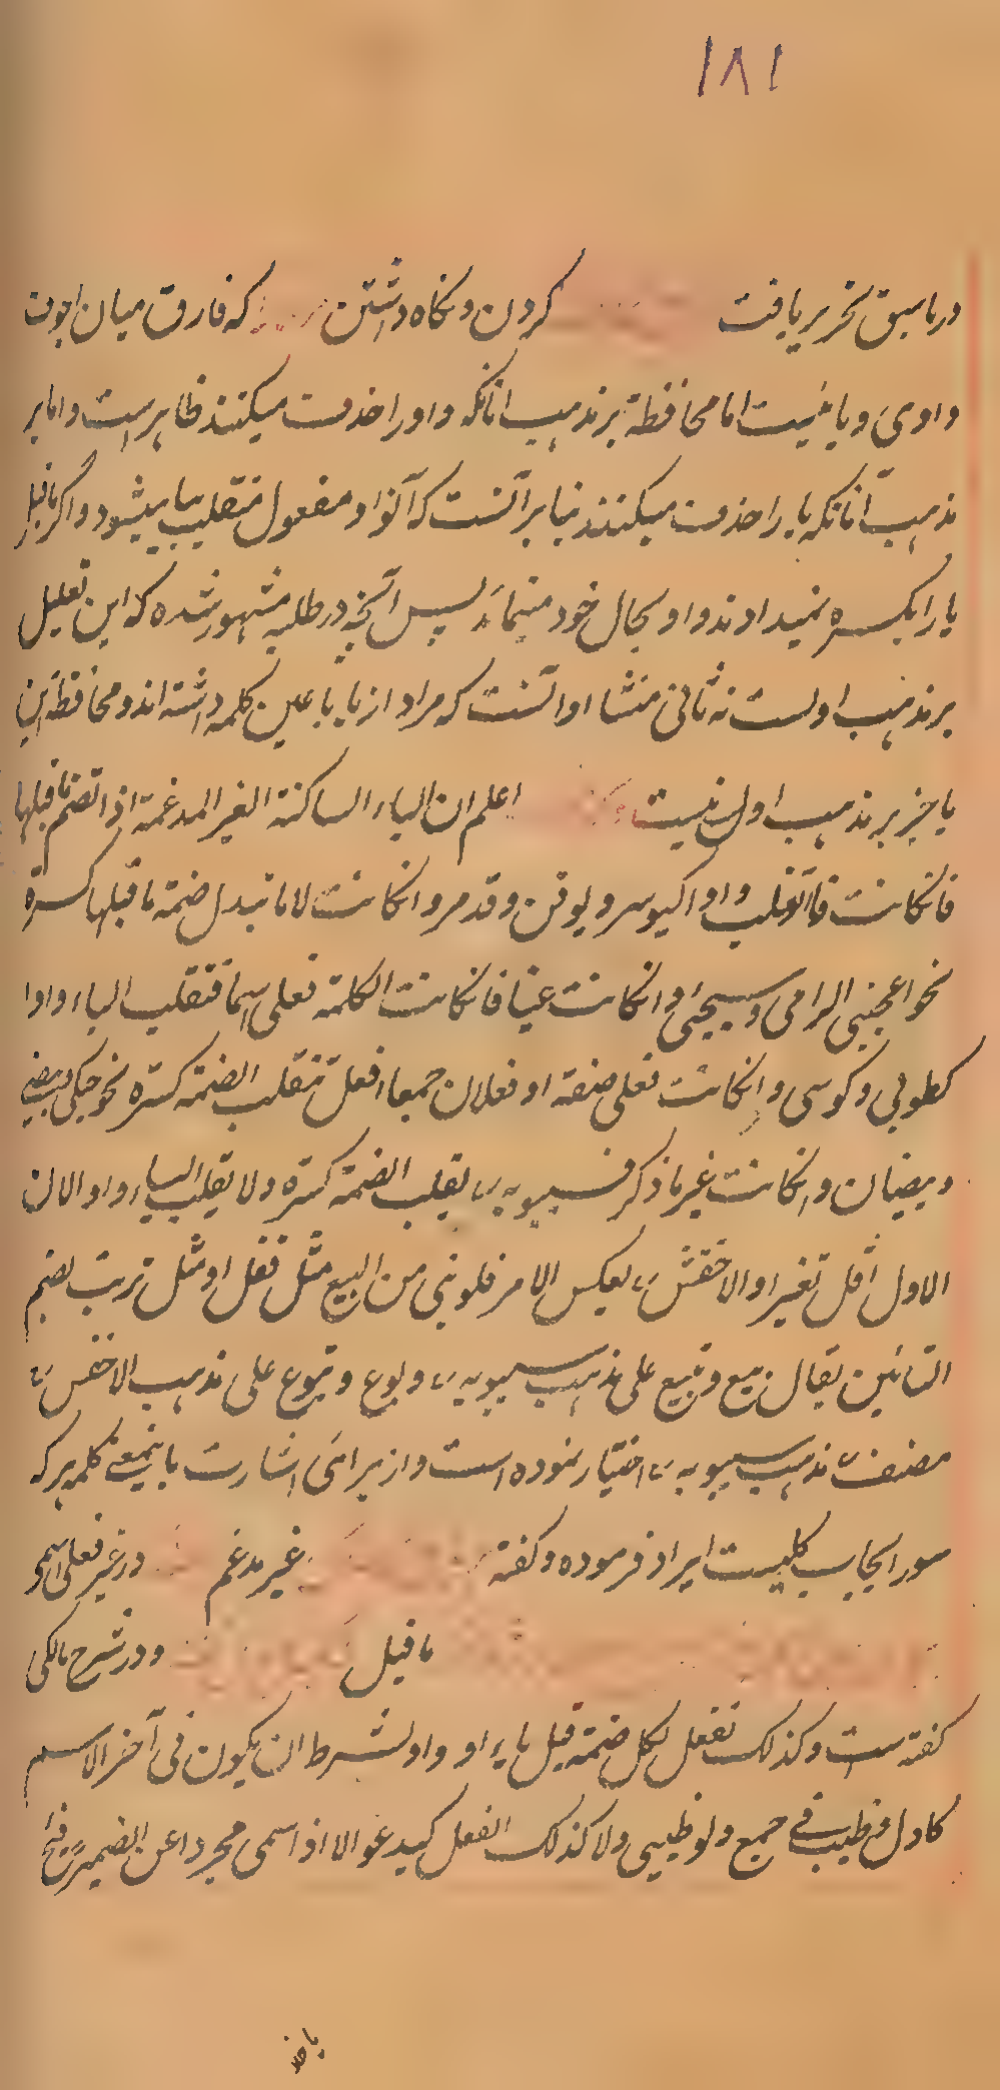 ١٨١
در ماسبق تحریر یافت کردن و نگاه داشتن که فارق میان اجوف
واوی و یائیست اما محافظة بر مذهب انانکه واو را حذف میکنند ظاهرست و اما بر
مذهب آنانکه یا را حذف میکنند بنابر آنست که آنواو مفعول منقلب بیا میشود و اگر ماقبل
یا را بکسره نمیدادند واو بحال خود میماند پس آنچه در طلبه مشهور شده که این تعلیل
بر مذهب اولست نه ثانی منشا او آنست که مراد از یا یا عین کلمه داشته اند و محافظة این
یا جز بر مذهب اول نیست اعلم ان الیاء الساکنة الغیر المدغمة اذا انضم ماقبلها
فانکانت فاء تقلب واوا کیوسر و یوقن و قد مر و انکانت لاما تبدل ضمة ماقبلها کسرة
نحو اعجبنی الرامی و سیجئی و انکانت عینا فانکانت الکلمة فعلی اسما فتقلب الیاء واوا
کطوبی و کوسی و انکانت فعلی صفة او فعلان جمعا افعل تنقلب الضمة کسرة نحو حیکی و بیض
و بیضان و انکانت غیر ما ذکر فسیبویه یقلب الضمة کسرة و لا یقلب الیاء واوا لان
الاول اقل تغیرا و الاخفش یعکس الامر فلو بنی من البیع مثل فعل او مثل ترتب بضم
التائین یقال بیع و تبیع علی مذهب سیبویه و بوع و تبوع علی مذهب الاخفش
مصنف مذهب سیبویه اختیار نموده است و از برای اشارت باینمعنی کلمه هر که
سور ایجاب کلیست ایراد فرموده و گفته غیر مدغم در غیر فعلی اسمی
ماقبل و در شرح مالکی
گفته ست و کذلک تفعل لکل ضمة قبل یاء او واو بشرط ان یکون فی آخر الاسم
کادل و ظبی فی جمع دلو و ظبی و لا کذلک الفعل کیدعو الا اذا سمی مجردا عن الضمیر